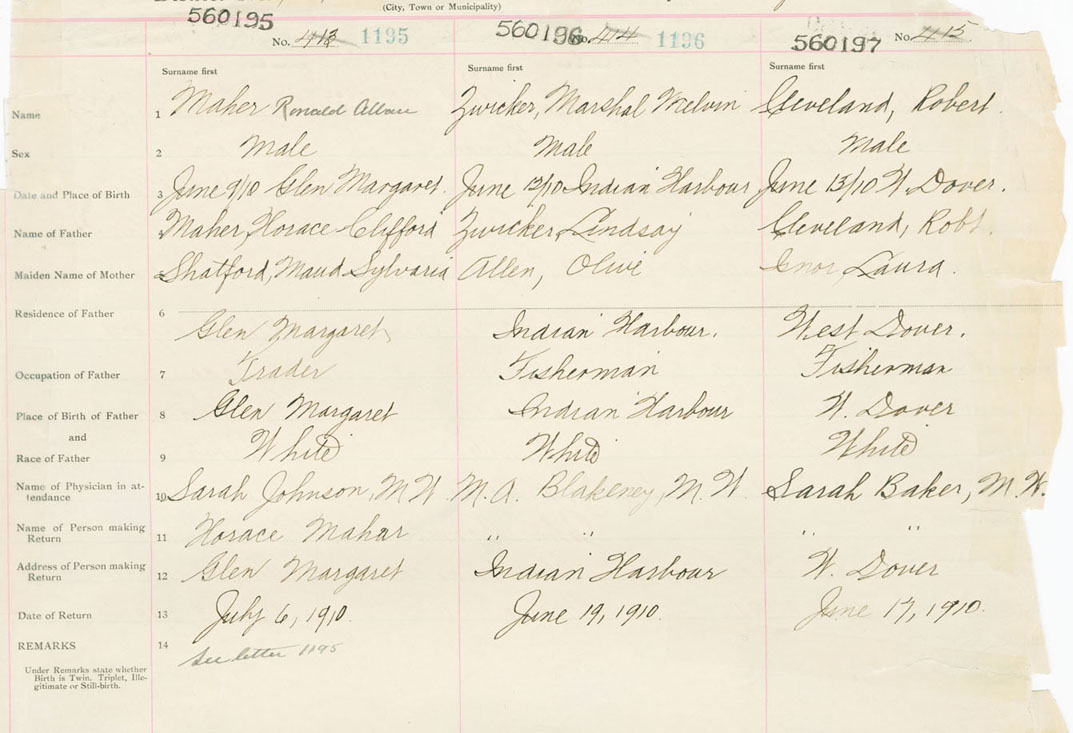 (City, Town or Municipality)
560195 No. 413 1195 560196 No. 414 1196 560197 No. 415
Surname first Surname first Surname first
Name 1 Maher Ronald Allan Zwicker, Marshal Melvin Cleveland, Robert.
Sex 2 Male Male Male
Date and Place of Birth 3 June 9/10 Glen Margaret. June 13/10 Indian Harbour June 13/10 W. Dover.
Name of Father Maher, Horace Clifford Zwicker, Lindsay Cleveland, Robt.
Maiden Name of Mother Shatford, Maud Sylvaria Allen, Olive Laura.
Residence of Father 6 Glen Margaret Indian Harbour. West Dover.
Occupation of Father 7 Trader Fisherman Fisherman
Place of Birth of Father 8 Glen Margaret Indian Harbour W. Dover
and
Race of Father 9 White White White
Name of Physician in at-
tendance 10 Sarah Johnson, M.W. M. A. Blakeney, M.W. Sarah Baker, M.W.
Name of Person making
Return 11 Horace Mahar " " " "
Address of Person making
Return 12 Glen Margaret Indian Harbour W. Dover
Date of Return 13 July 6, 1910. June 19, 1910. June 17, 1910.
REMARKS 14
See letter 1195
Under Remarks state whether
Birth is Twin, Triplet, Ille-
gitimate or Still-birth.